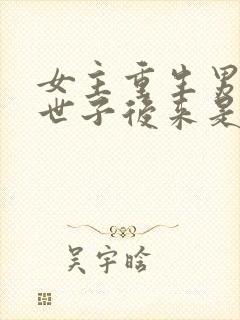 女主重生男
世子後来是
吴宇晗